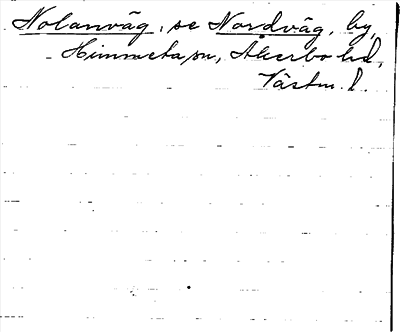 Nolanväg, se Nordväg, by,
Himmeta sn, Åkerbo hd,
Västm. l.